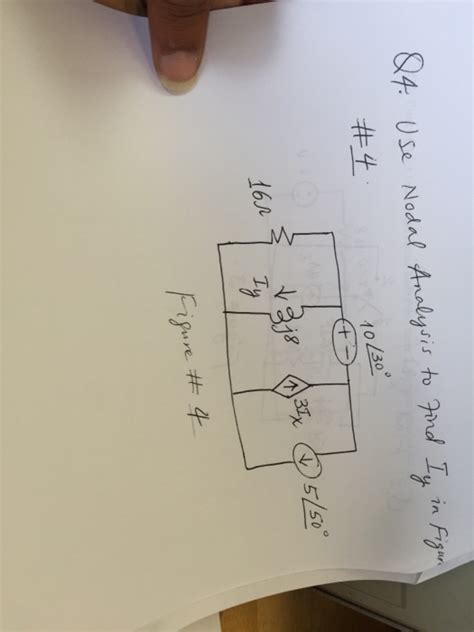 Q4. Use Nodal Analysis to Find Iy in Figur
#4.
10∠30°
+ -
16Ω
↓ j8
Iy
↑ 3Ix
↓ 5∠50°
Figure # 4